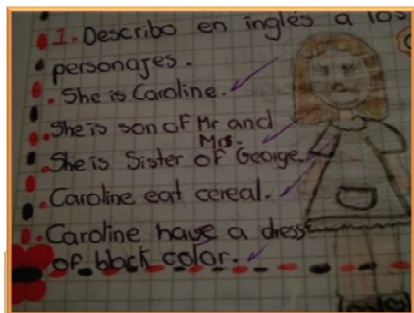 1. Describo en inglés a los
personajes.
. She is Caroline.
. She is son of Mr and
Mrs.
. She is Sister of George.
. Caroline eat cereal.
. Caroline have a dress
of black color.